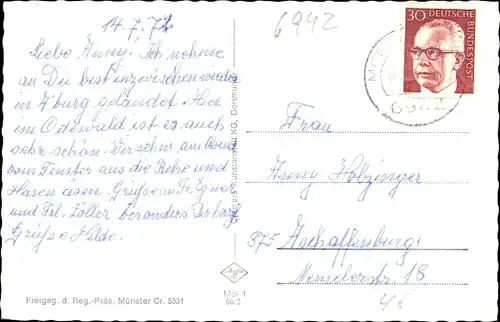 14.7.72
Liebe Anny. Ich nehme
an Du bist inzwischen wieder
in A'burg gelandet. Hier
im Odenwald ist es auch
sehr schön. Wir sehn am Abend
vom Fenster aus die Rehe und
Hasen äsen. Grüße an Fr.
und Frl. Zoller besonders Du
Grüße Hilde.
6942
30 DEUTSCHE
BUNDESPOST
Frau
Anny Holzinger
875 Aschaffenburg
18
Kunstanstalt KG, Dortmund
Agfa
Mör 1
66/3
Freigeg. d. Reg.-Präs. Münster Cr. 5331